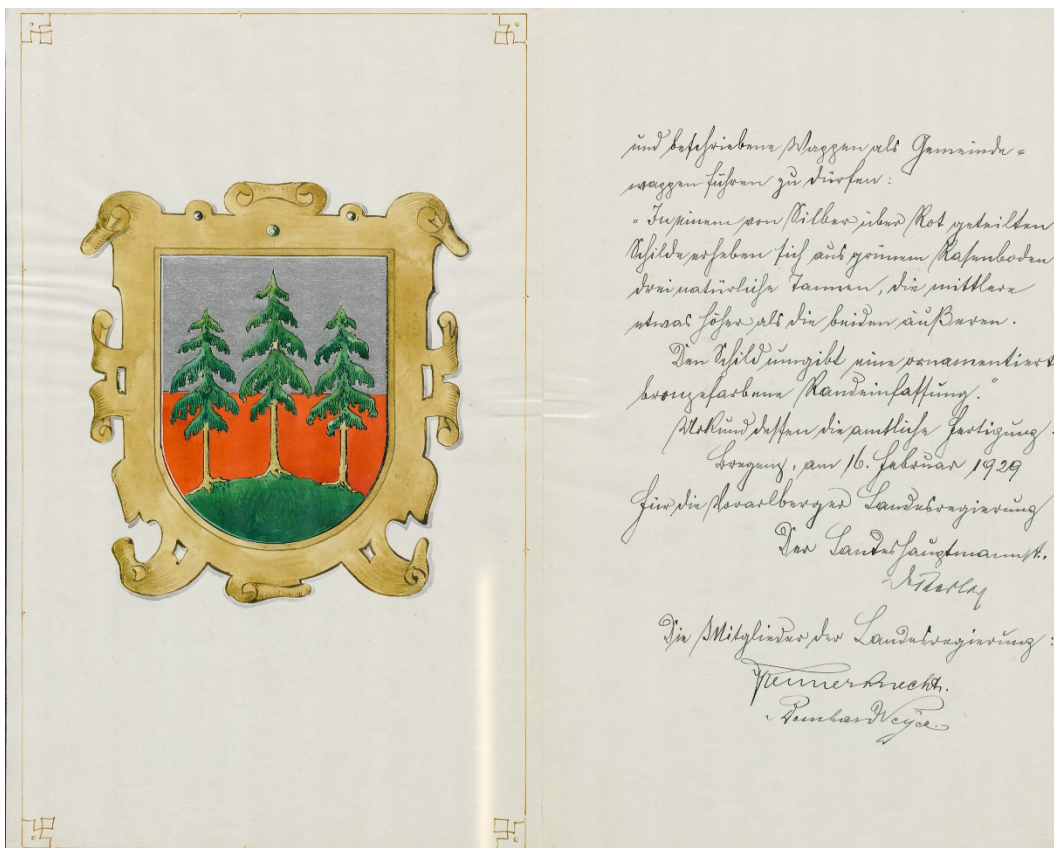 und beschriebene Wappen als Gemeinde=
wappen führen zu dürfen:
"In einem von Silber über Rot geteilten
Schilde erheben sich aus grünem Rasenboden
drei natürliche Tannen, die mittlere
etwas höher als die beiden äußeren.
Den Schild umgibt eine ornamentiert
bronzefarbene Randeinfassung."
Urkund dessen die amtliche Fertigung.
Bregenz, am 16. Februar 1929
Für die Vorarlberger Landesregierung
Der Landeshauptmannst.
Die Mitglieder der Landesregierung: